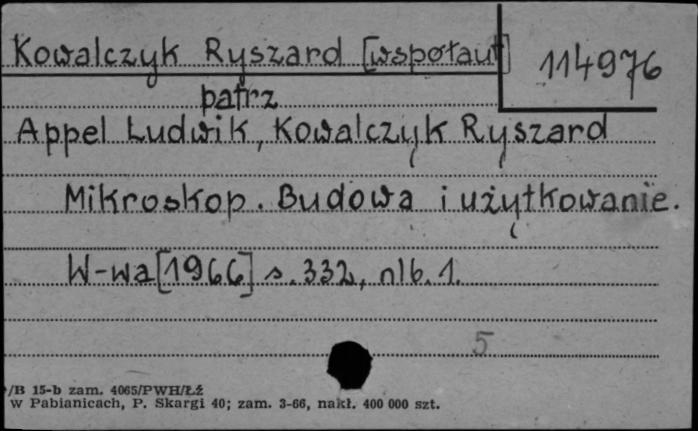 Kowalczyk Ryszard [współaut]
114976
patrz
Appel Ludwik, Kowalczyk Ryszard
Mikroskop. Budowa i użytkowanie.
W-wa [1966] s. 332, nlb. 1.
5
/B 15-b zam. 4065/PWH/Łź
w Pabianicach, P. Skargi 40; zam. 3-66, nakł. 400 000 szt.